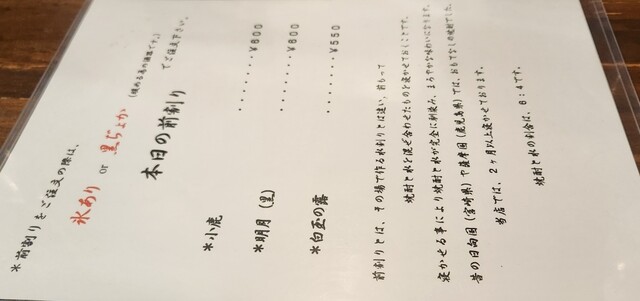 *前割りをご注文の際は、
氷あり or 黒ぢょか (暖める為の酒器です。)
でご注文下さい。
本日の前割り
*小鹿 ・・・・・・・・¥600
*明月(黒) ・・・・・・・・¥600
*白玉の露 ・・・・・・・・¥550
前割りとは、その場で作る水割りとは違い、前もって
焼酎と水を混ぜ合わせたものを寝かせておくことです。
寝かせる事により焼酎と水が完全に馴染み、まろやかな味わいになります。
昔の日向国(宮崎県)や薩摩国(鹿児島県)では、おもてなしの焼酎でした。
当店では、2ヶ月以上寝かせております。
焼酎と水の割合は、6:4です。